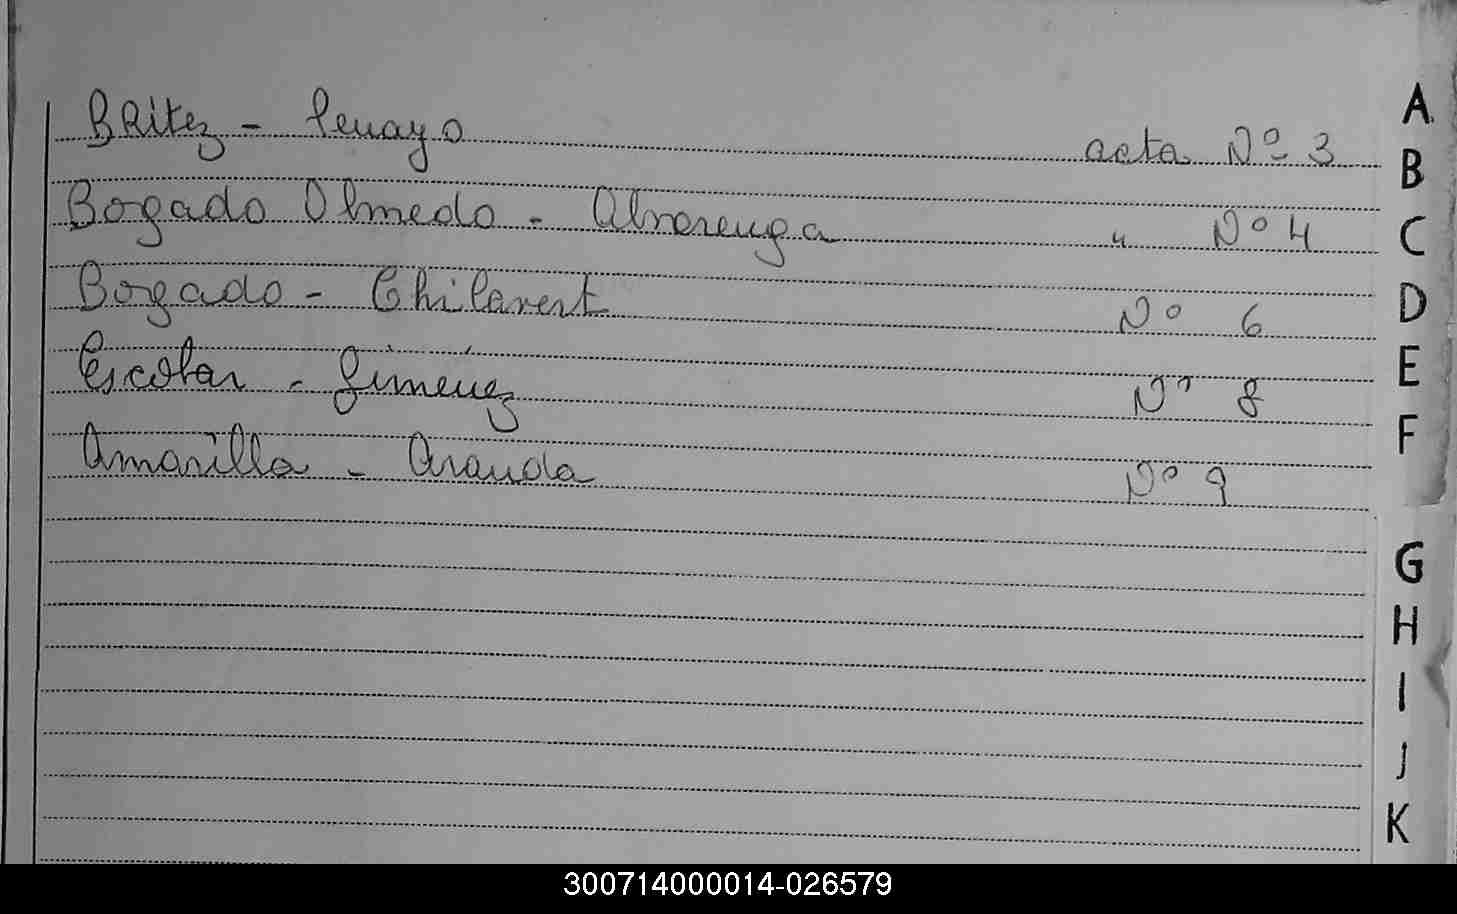 Britez - Penayo acta Nº 3
Bogado Olmedo - Alvarenga " Nº 4
Bogado - Chilavert Nº 6
Escobar - Giménez Nº 8
Amarilla - Aranda Nº 9
A
B
C
D
E
F
G
H
I
J
K
300714000014-026579